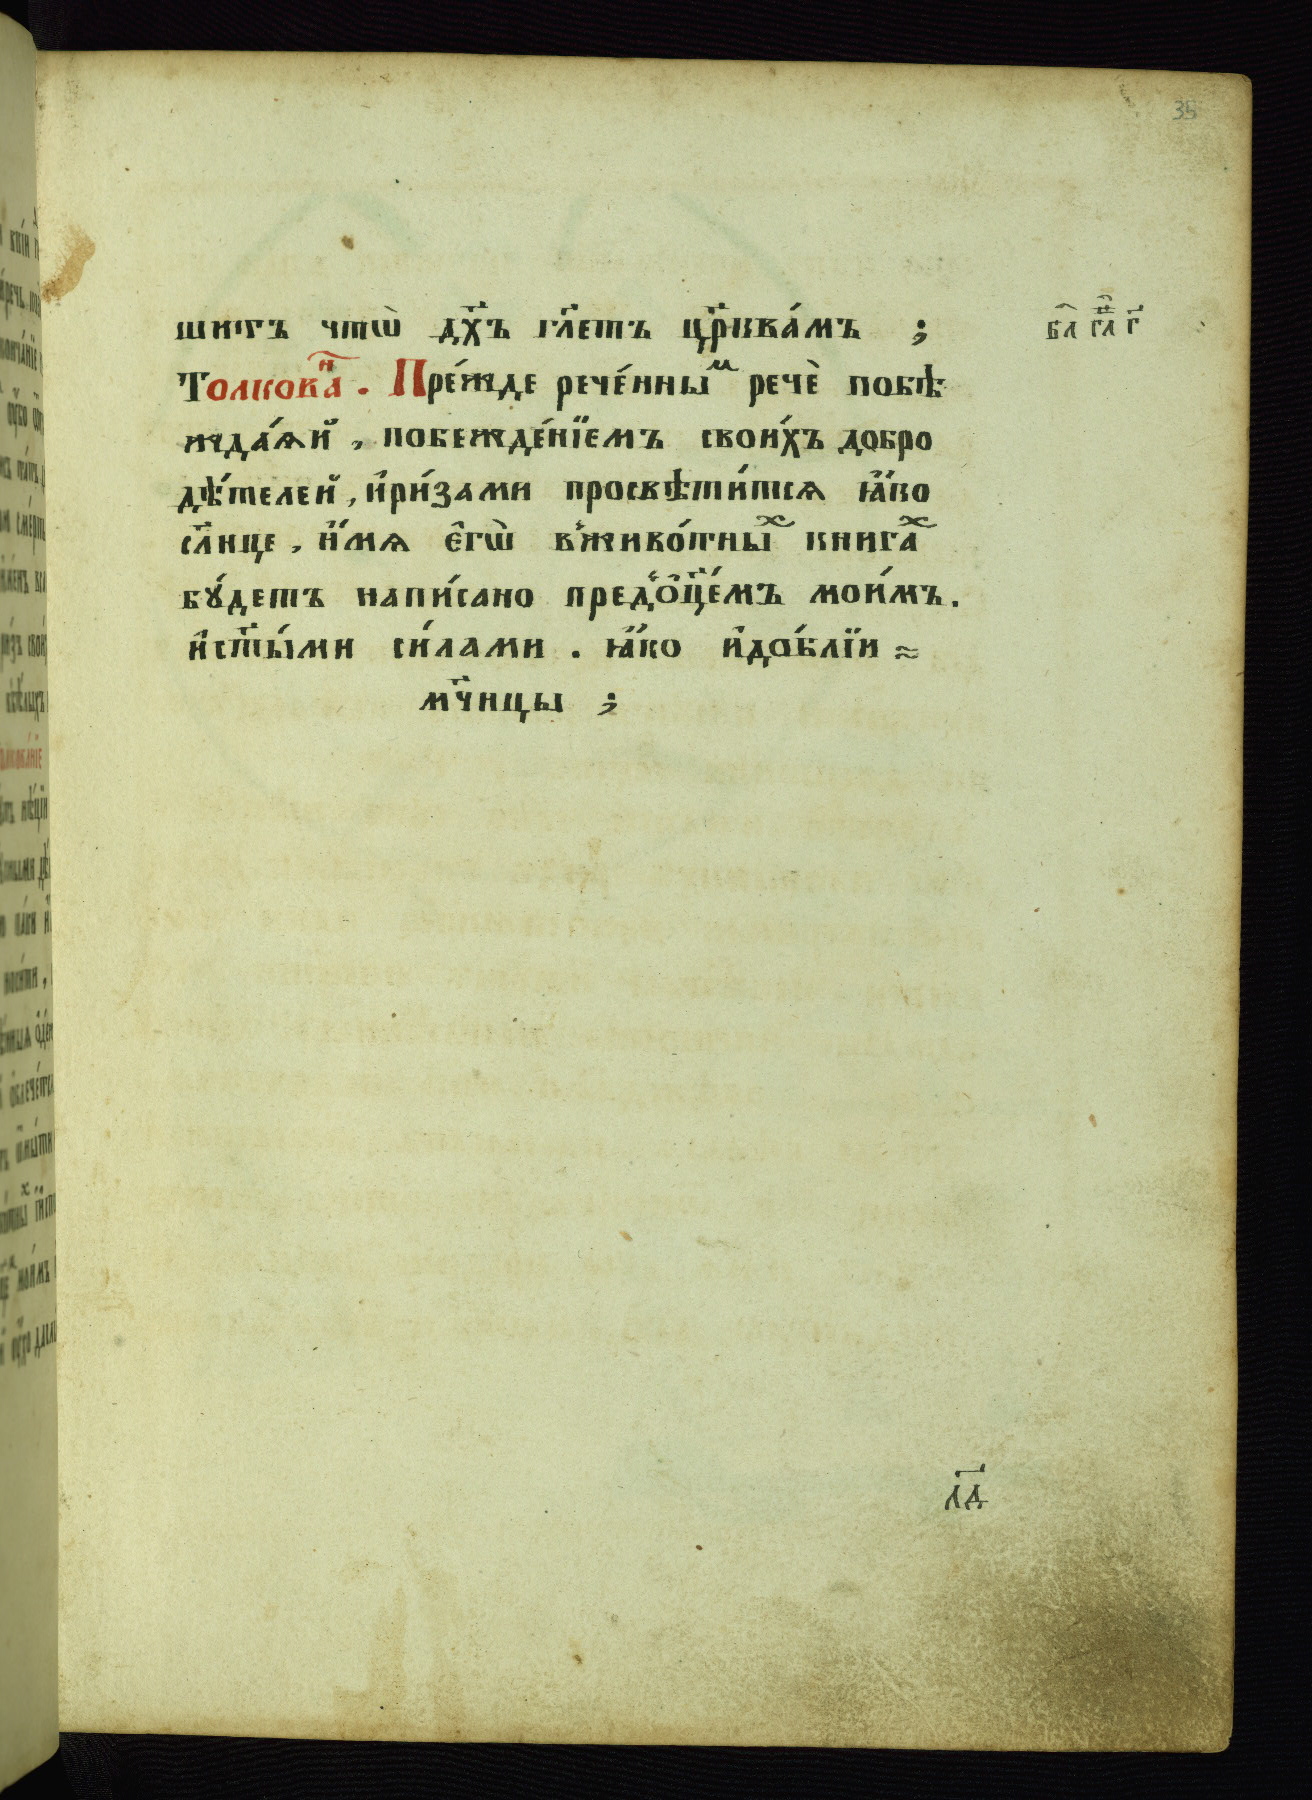 35
шитъ что̀ дх҃ъ гл҃етъ цр҃квамъ ; бл гл г҃
Толкован. Пре́жде рече́нныⷨ речѐ побѣ
жда́ѧй, побежде́нїемъ свои́хъ добро
дѣ́телей, и҆ри́зами просвѣти́тсѧ ꙗ҆́ко
сл҃нце, и҆́мѧ є҆гѡ̀ вживо́тныⷯ книгаⷯ
бꙋ́детъ напи́сано предо҆ц҃е́мъ мои́мъ.
и҆ст҃ы́ми си́лами. ꙗ҆́ко и҆до́блїи
мч҃нцы ;
л҃д